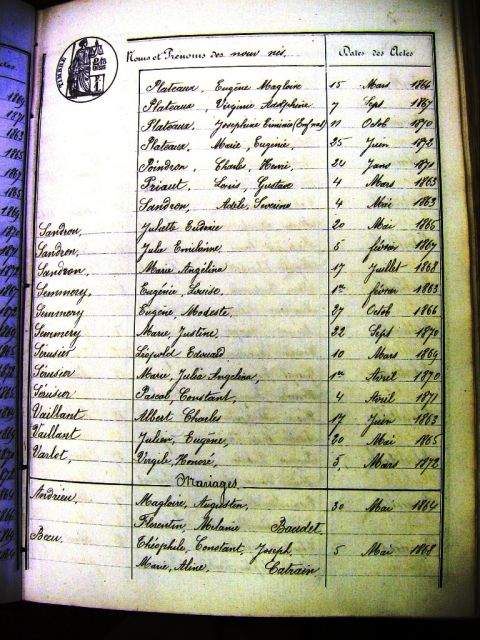 TIMBRE
Noms et Prénoms des nouv. nés. Dates des Actes
Plateaux, Eugène Magloire 15 Mars 1864
Plateaux, Virginie Adolphine 7 Sept 1867
Plateaux, Josephine 11 Octob 1870
Plateaux, Marie, Eugénie, 25 Juin 1872
Poindron, Charles Henri, 24 Janv 1871
Priaut, Louis, Gustave 4 Mars 1863
Sandron, Adèle, Severine 4 1863
Sandron, Juliette 20 Mai 1866
Sandron, Julie Emilienne, 5 février 1867
Sandron, Marie Angélina 17 Juillet 1868
Semmery, Eugénie, Louise, 1er février 1863
Semmery Eugène, Modeste, 27 Octob 1866
Semmery Marie, Justine, 22 Sept 1870
Sérusier Léopold Edouard 10 Mars 1869
Sérusier Marie, Julia Angelina, 1er Avril 1870
Sérusier Pascal, Constant, 4 Avril 1871
Vaillant Albert Charles 17 Juin 1863
Vaillant Julien, Eugène, 20 Mai 1865
Varlot, Virgile, Honoré, 5, Mars 1872
Mariages.
Andrieu, Magloire, Augustin, 30 Mai 1864
Florentin, Mélanie Baudet
Boeu. Théophile, Constant, Joseph, 5 Mai 1868
Marie, Aline, Catrain